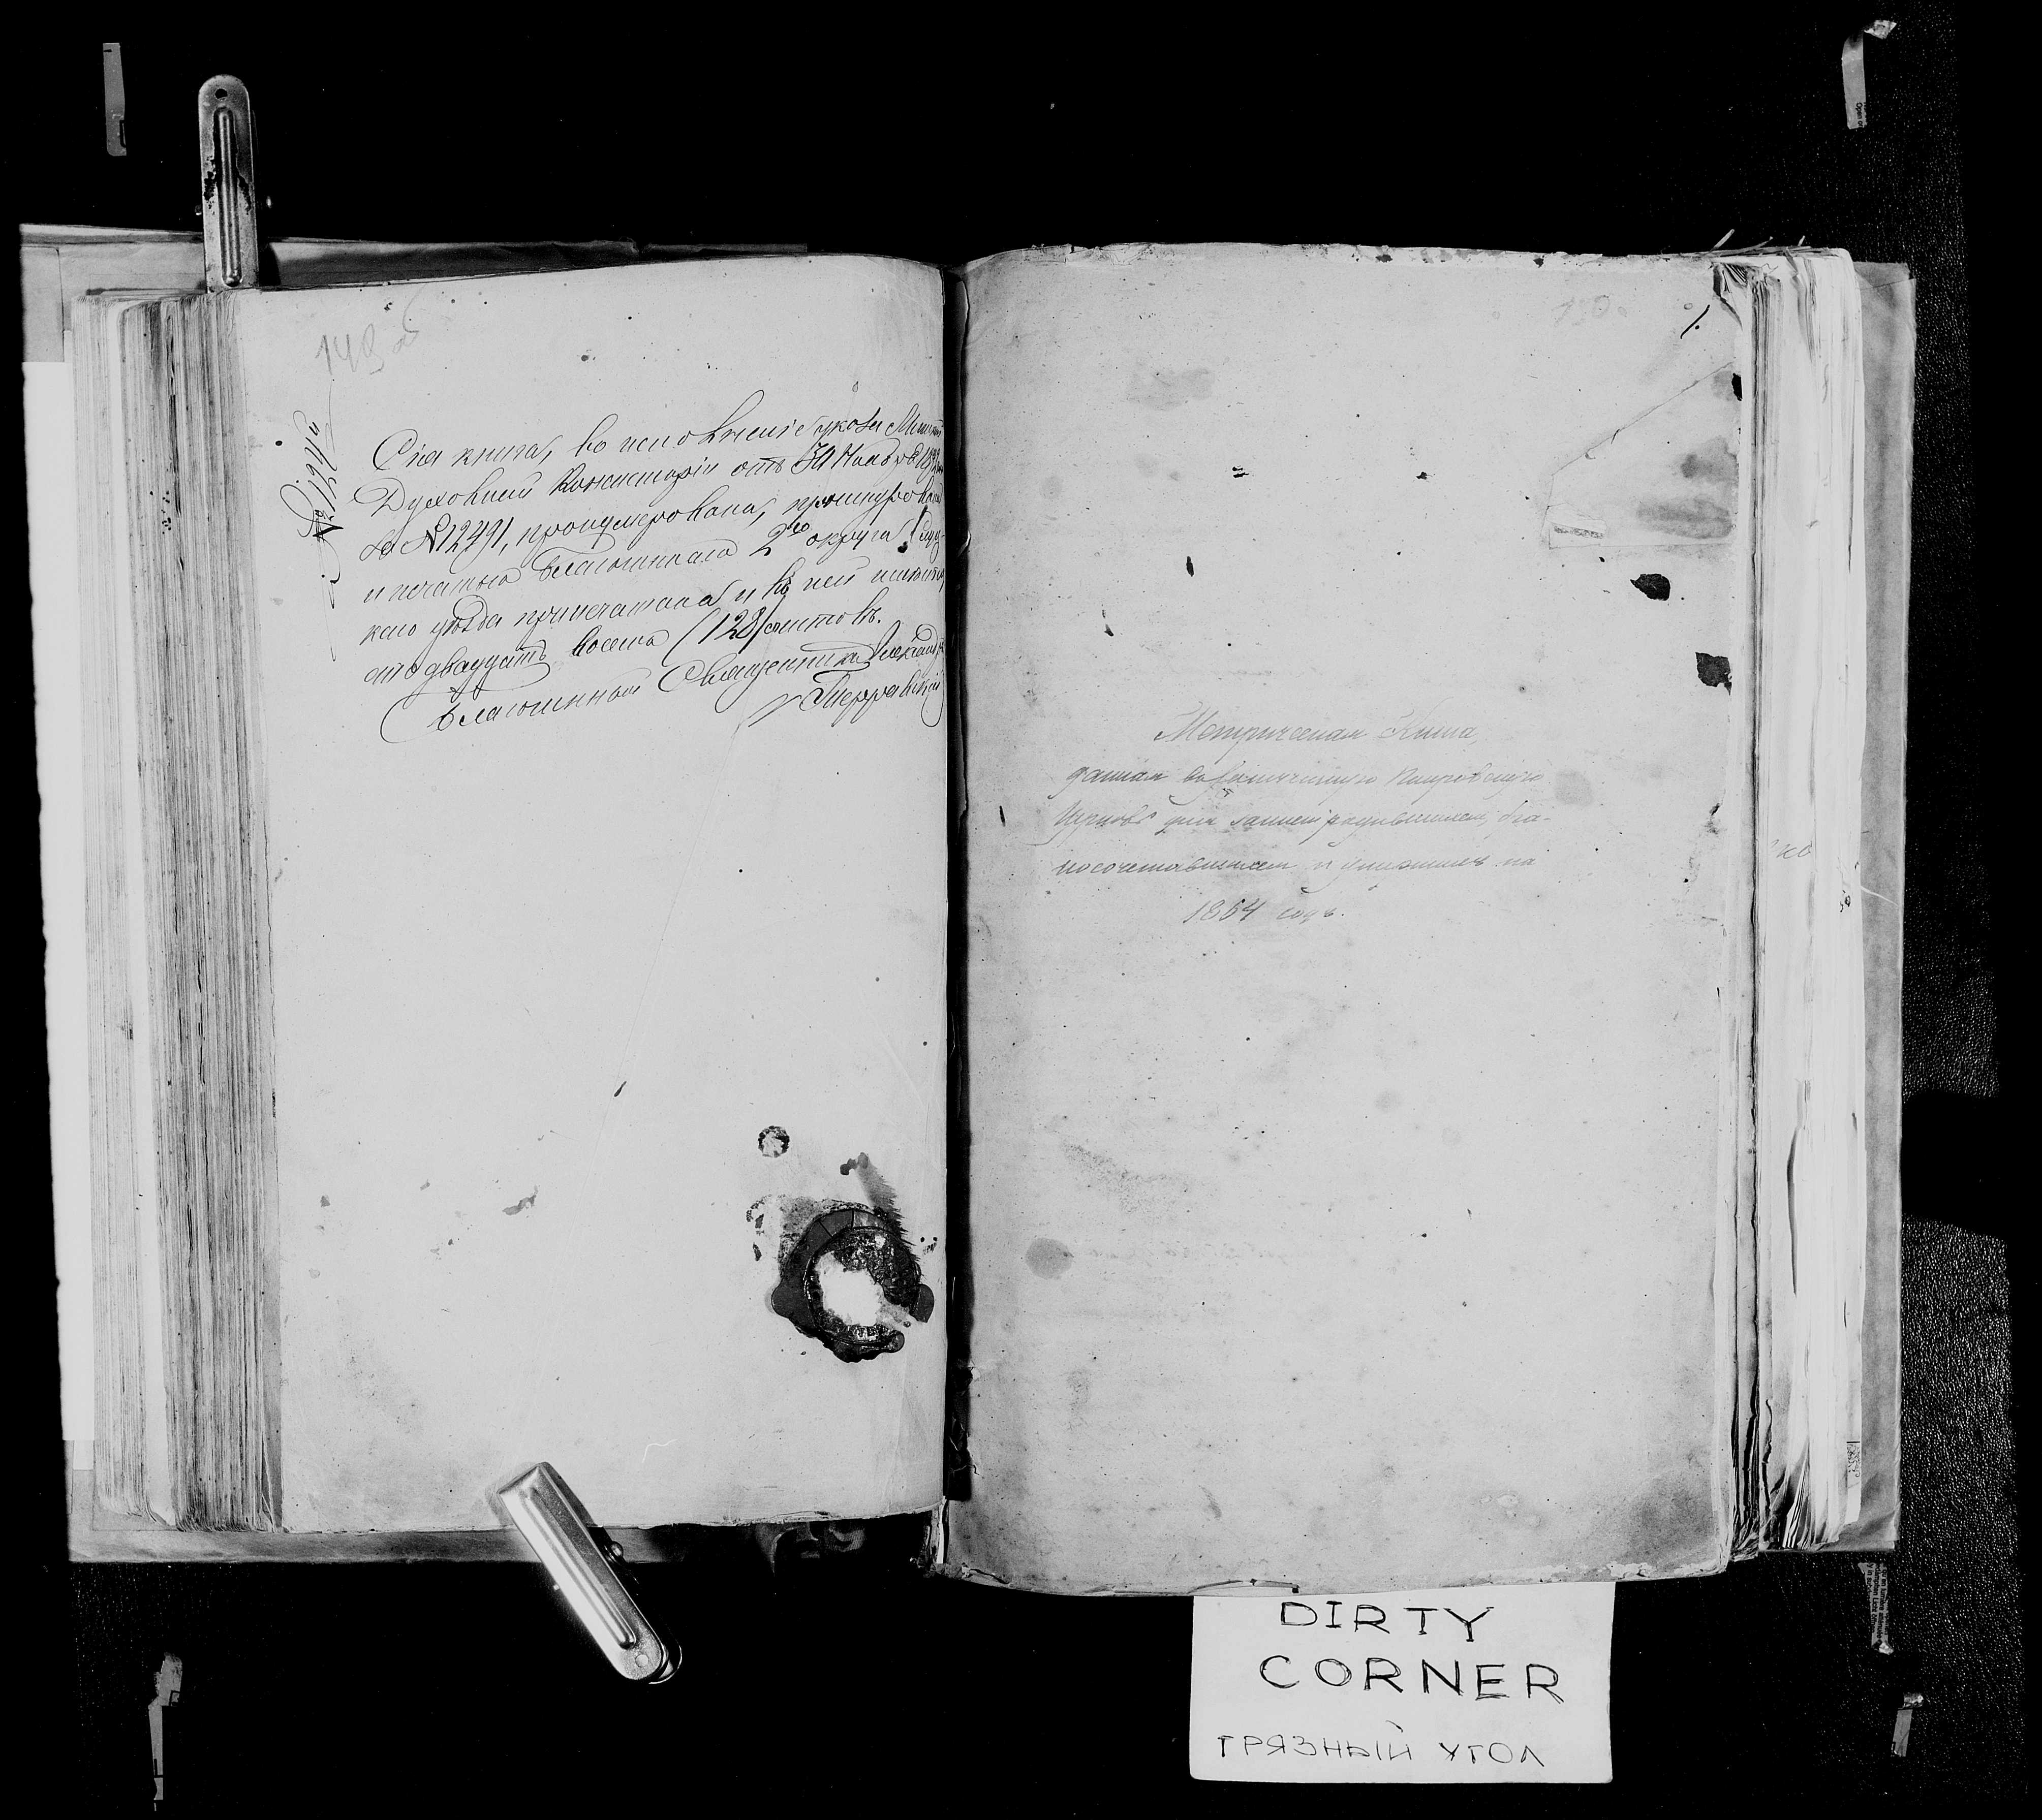 149 об
Сія книга, во исполненіе указа Минской
Духовной Консисторіи отъ 30 Ноября
за № 12491, пронумерована, прошнурована
и печатью Благочиннаго 2го округа Слуц-
каго уѣзда припечатана и въ ней
сто двадцать восемь (128) листовъ.
Благочинный Священникъ Александръ
150
1.
Метрическая Книга,
данная въ Покровскую
Церковь для записи родившихся, бра-
косочетавшихся и умершихъ на
1864 годъ.
DIRTY
CORNER
ГРЯЗНЫЙ УГОЛ